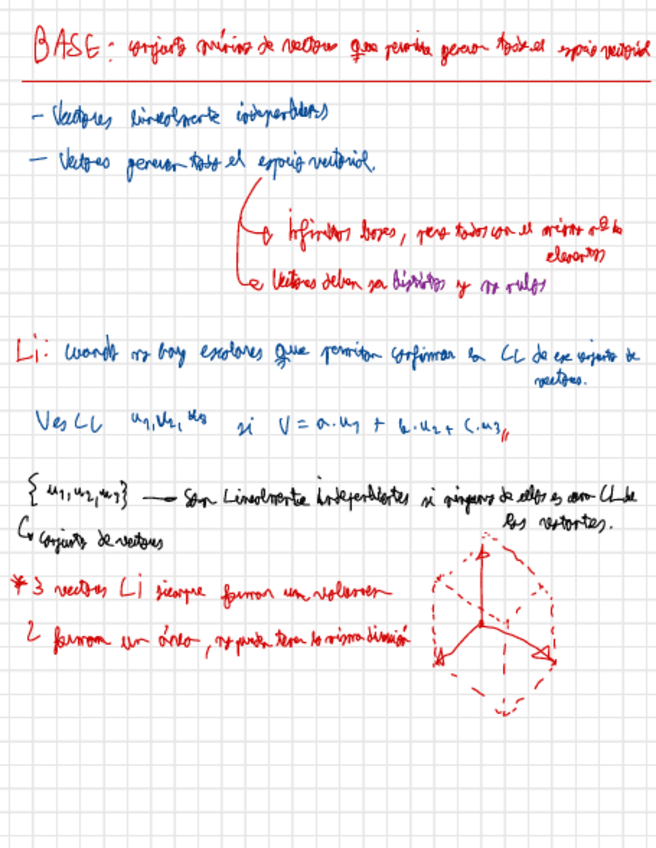 BASE: conjunto mínimo de vectores que permita generar todo el espacio vectorial
- Vectores linealmente independientes
- Vectores generan todo el espacio vectorial.
Infinitas bases, pero todas con el mismo nº de
elementos
Vectores deben ser distintos y no nulos
Li: cuando no hay escalares que permitan confirmar la CL de ese conjunto de
vectores.
V es CL u1, u2, u3 si V = a.u1 + b.u2 + c.u3,,
{u1, u2, u3} — Son Linealmente independientes si ninguno de ellos es una CL de
los restantes.
conjunto de vectores
* 3 vectores Li siempre forman un volumen
2 forman un área, no pueden tener la misma dirección